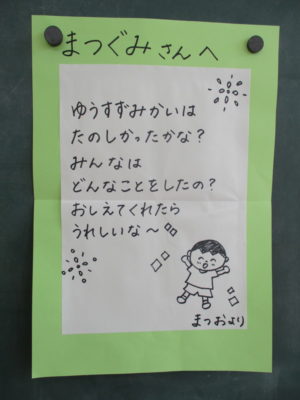 まつぐみさんへ
ゆうすずみかいは
たのしかったかな?
みんなは
どんなことをしたの?
おしえてくれたら
うれしいな～
まつおより